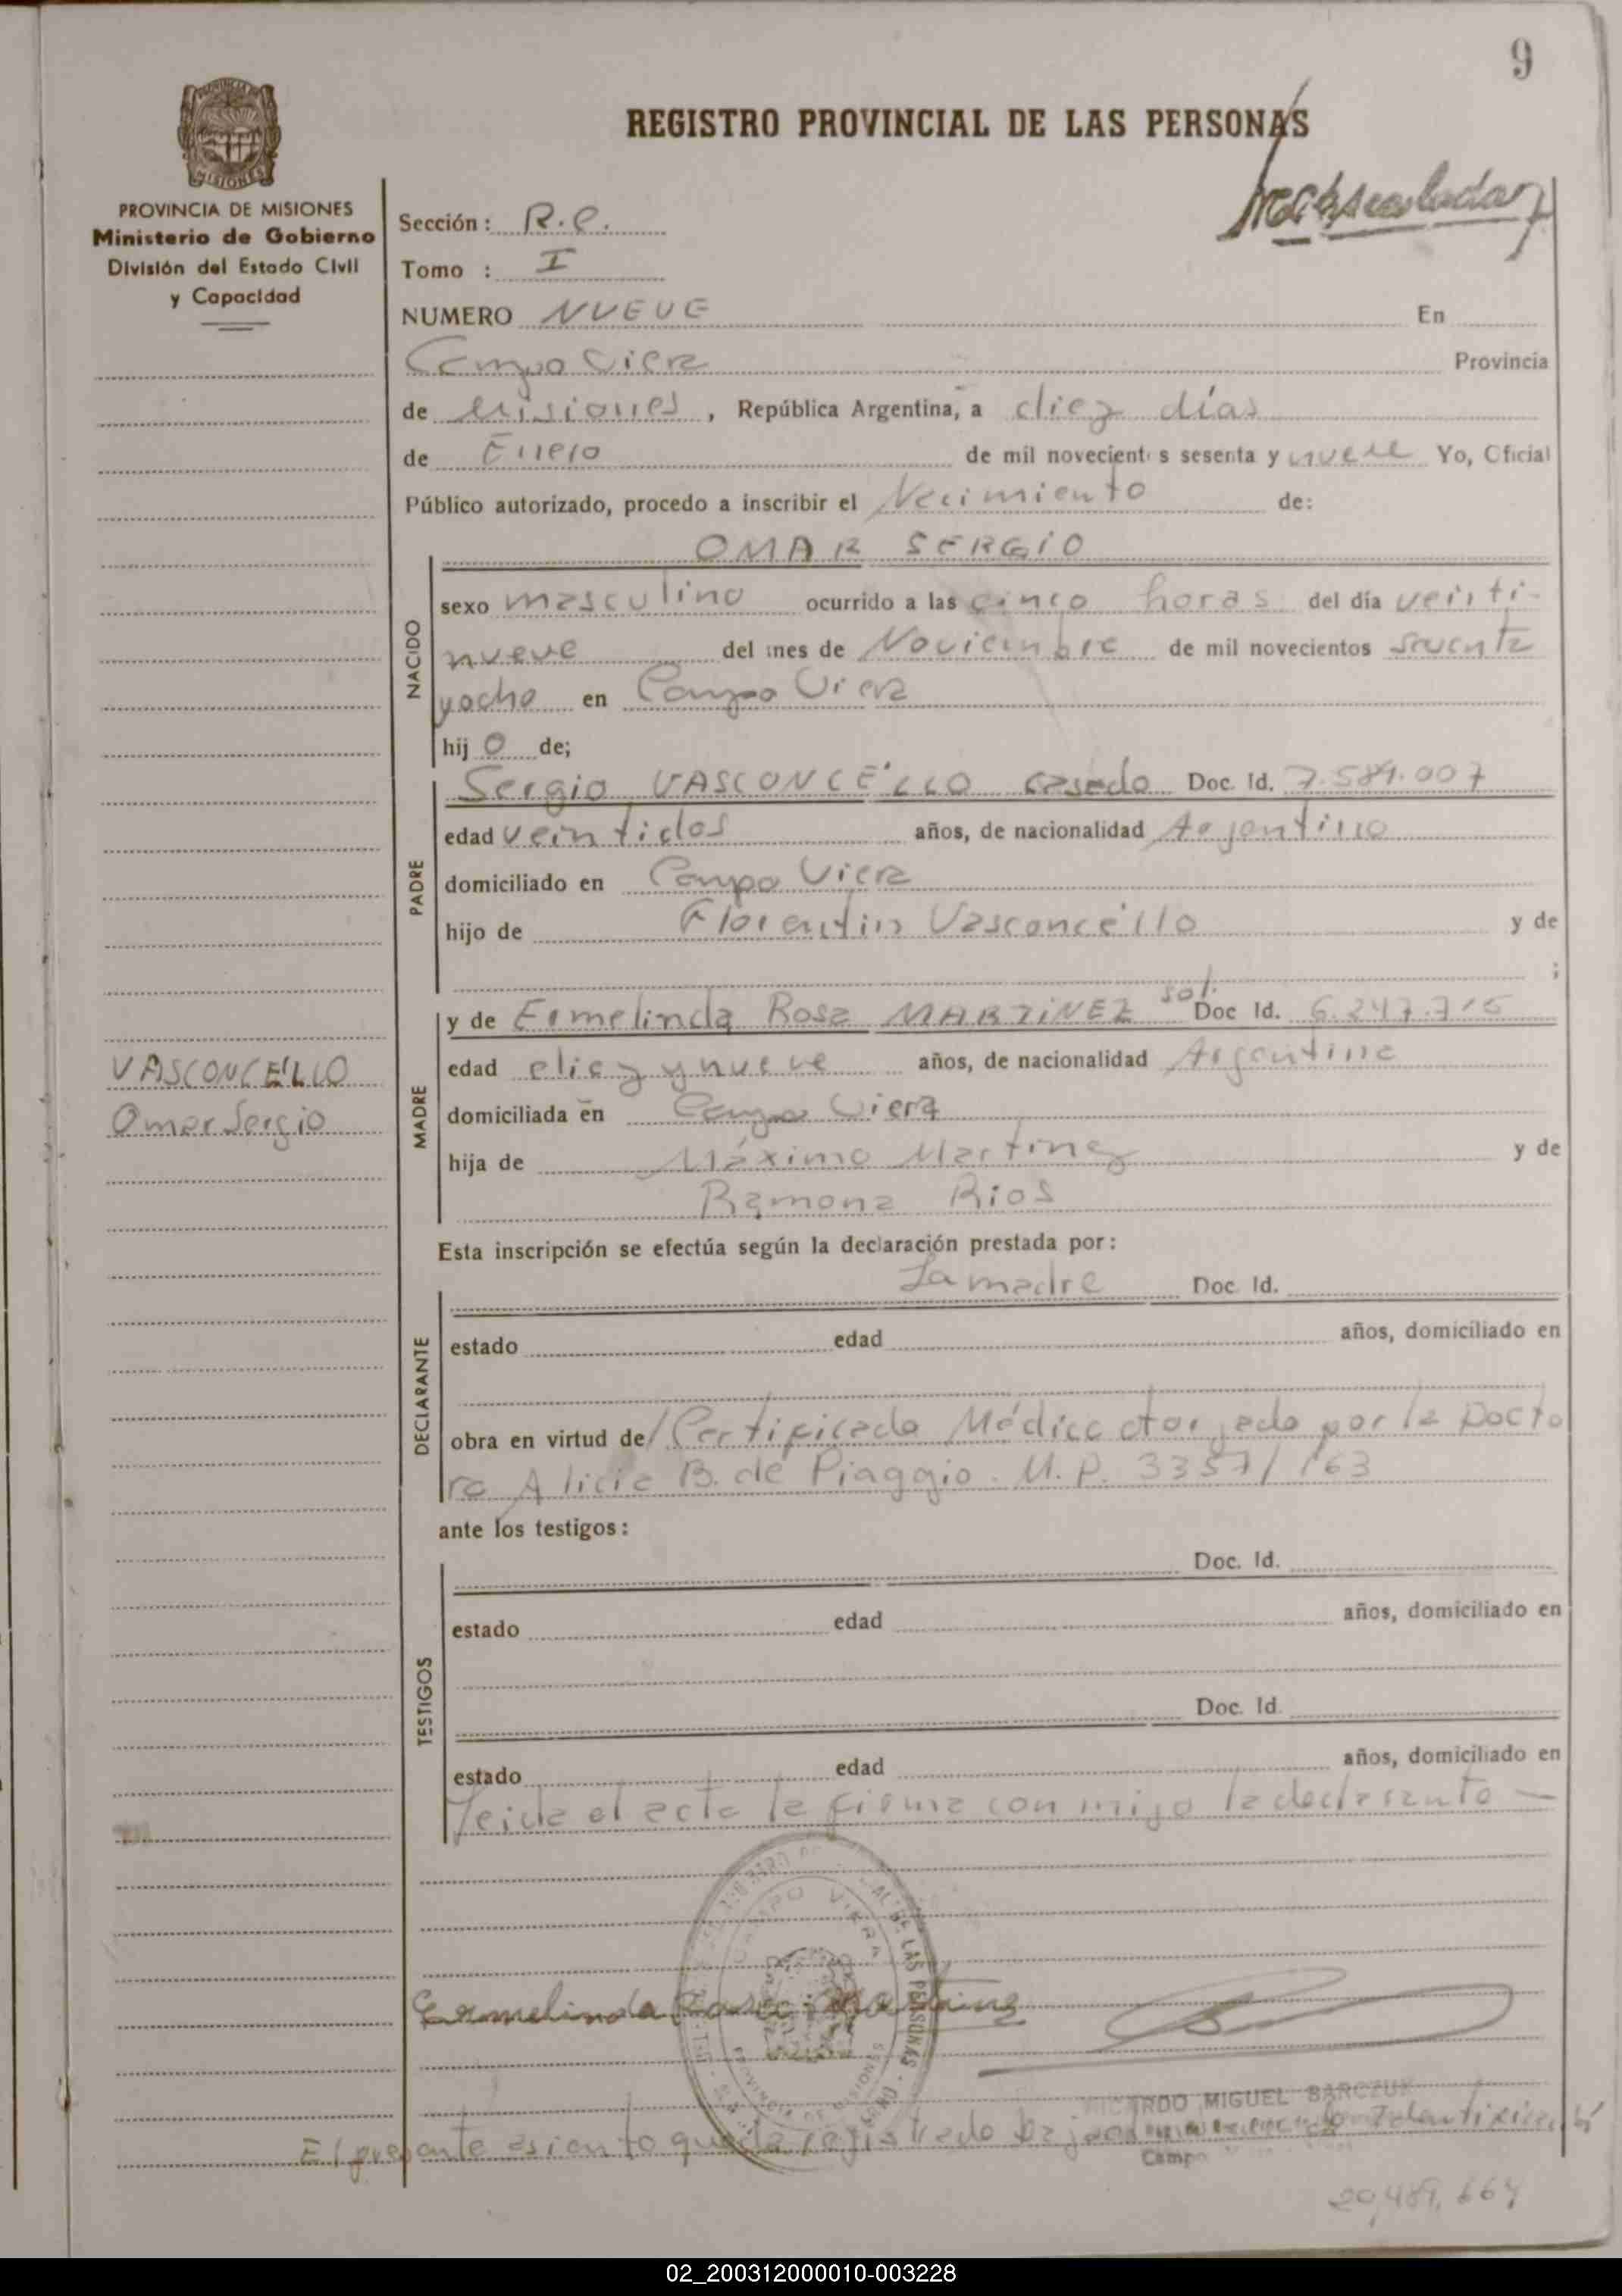 9
REGISTRO PROVINCIAL DE LAS PERSONAS
MISIONES
PROVINCIA DE MISIONES
Ministerio de Gobierno
División del Estado Civil
y Capacidad
Sección: R.C.
Tomo : I
NUMERO NUEVE En
Campo Viera Provincia
de Misiones, República Argentina, a diez días
de Enero de mil novecientos sesenta y nueve Yo, Oficial
Público autorizado, procedo a inscribir el Nacimiento de:
OMAR SERGIO
NACIDO
sexo masculino ocurrido a las cinco horas del día veinti-
nueve del mes de Noviembre de mil novecientos sesenta
y ocho en Campo Viera
hij o de;
PADRE
Sergio VASCONCÉLLO casado Doc. Id. 7.584.007
edad veintidos años, de nacionalidad Argentino
domiciliado en Campo Viera
hijo de Florentin Vasconcéllo y de
;
MADRE
y de Ermelinda Rosa MARTINEZ sol. Doc Id. 6.247.715
edad diez y nueve años, de nacionalidad Argentina
domiciliada en Campo Viera
hija de Máximo Martinez y de
Ramona Rios
VASCONCÉLLO
Omar Sergio
Esta inscripción se efectúa según la declaración prestada por:
DECLARANTE
La madre Doc. Id.
estado edad años, domiciliado en
obra en virtud de/ Certificado Médico otorgado por la Docto
ra Alicia B. de Piaggio. M.P. 3357/163
ante los testigos:
TESTIGOS
Doc. Id.
estado edad años, domiciliado en
Doc. Id.
estado edad años, domiciliado en
Leida el acta la firma con migo la declarante —
CAMPO VIERA
DE LAS PERSONAS
Ermelinda Rosa Martinez
RICARDO MIGUEL BARCZUK
El presente asiento queda registrado bajo
Campo
20,489,664
02_200312000010-003228